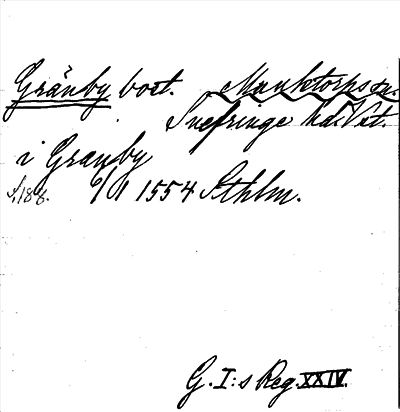 Gränby bost. Munktorps sn.
Snefringe hd. Vet.
i Granby
S. 188. 9/1 1554 Sthlm.
G. I:s Reg. XXIV.